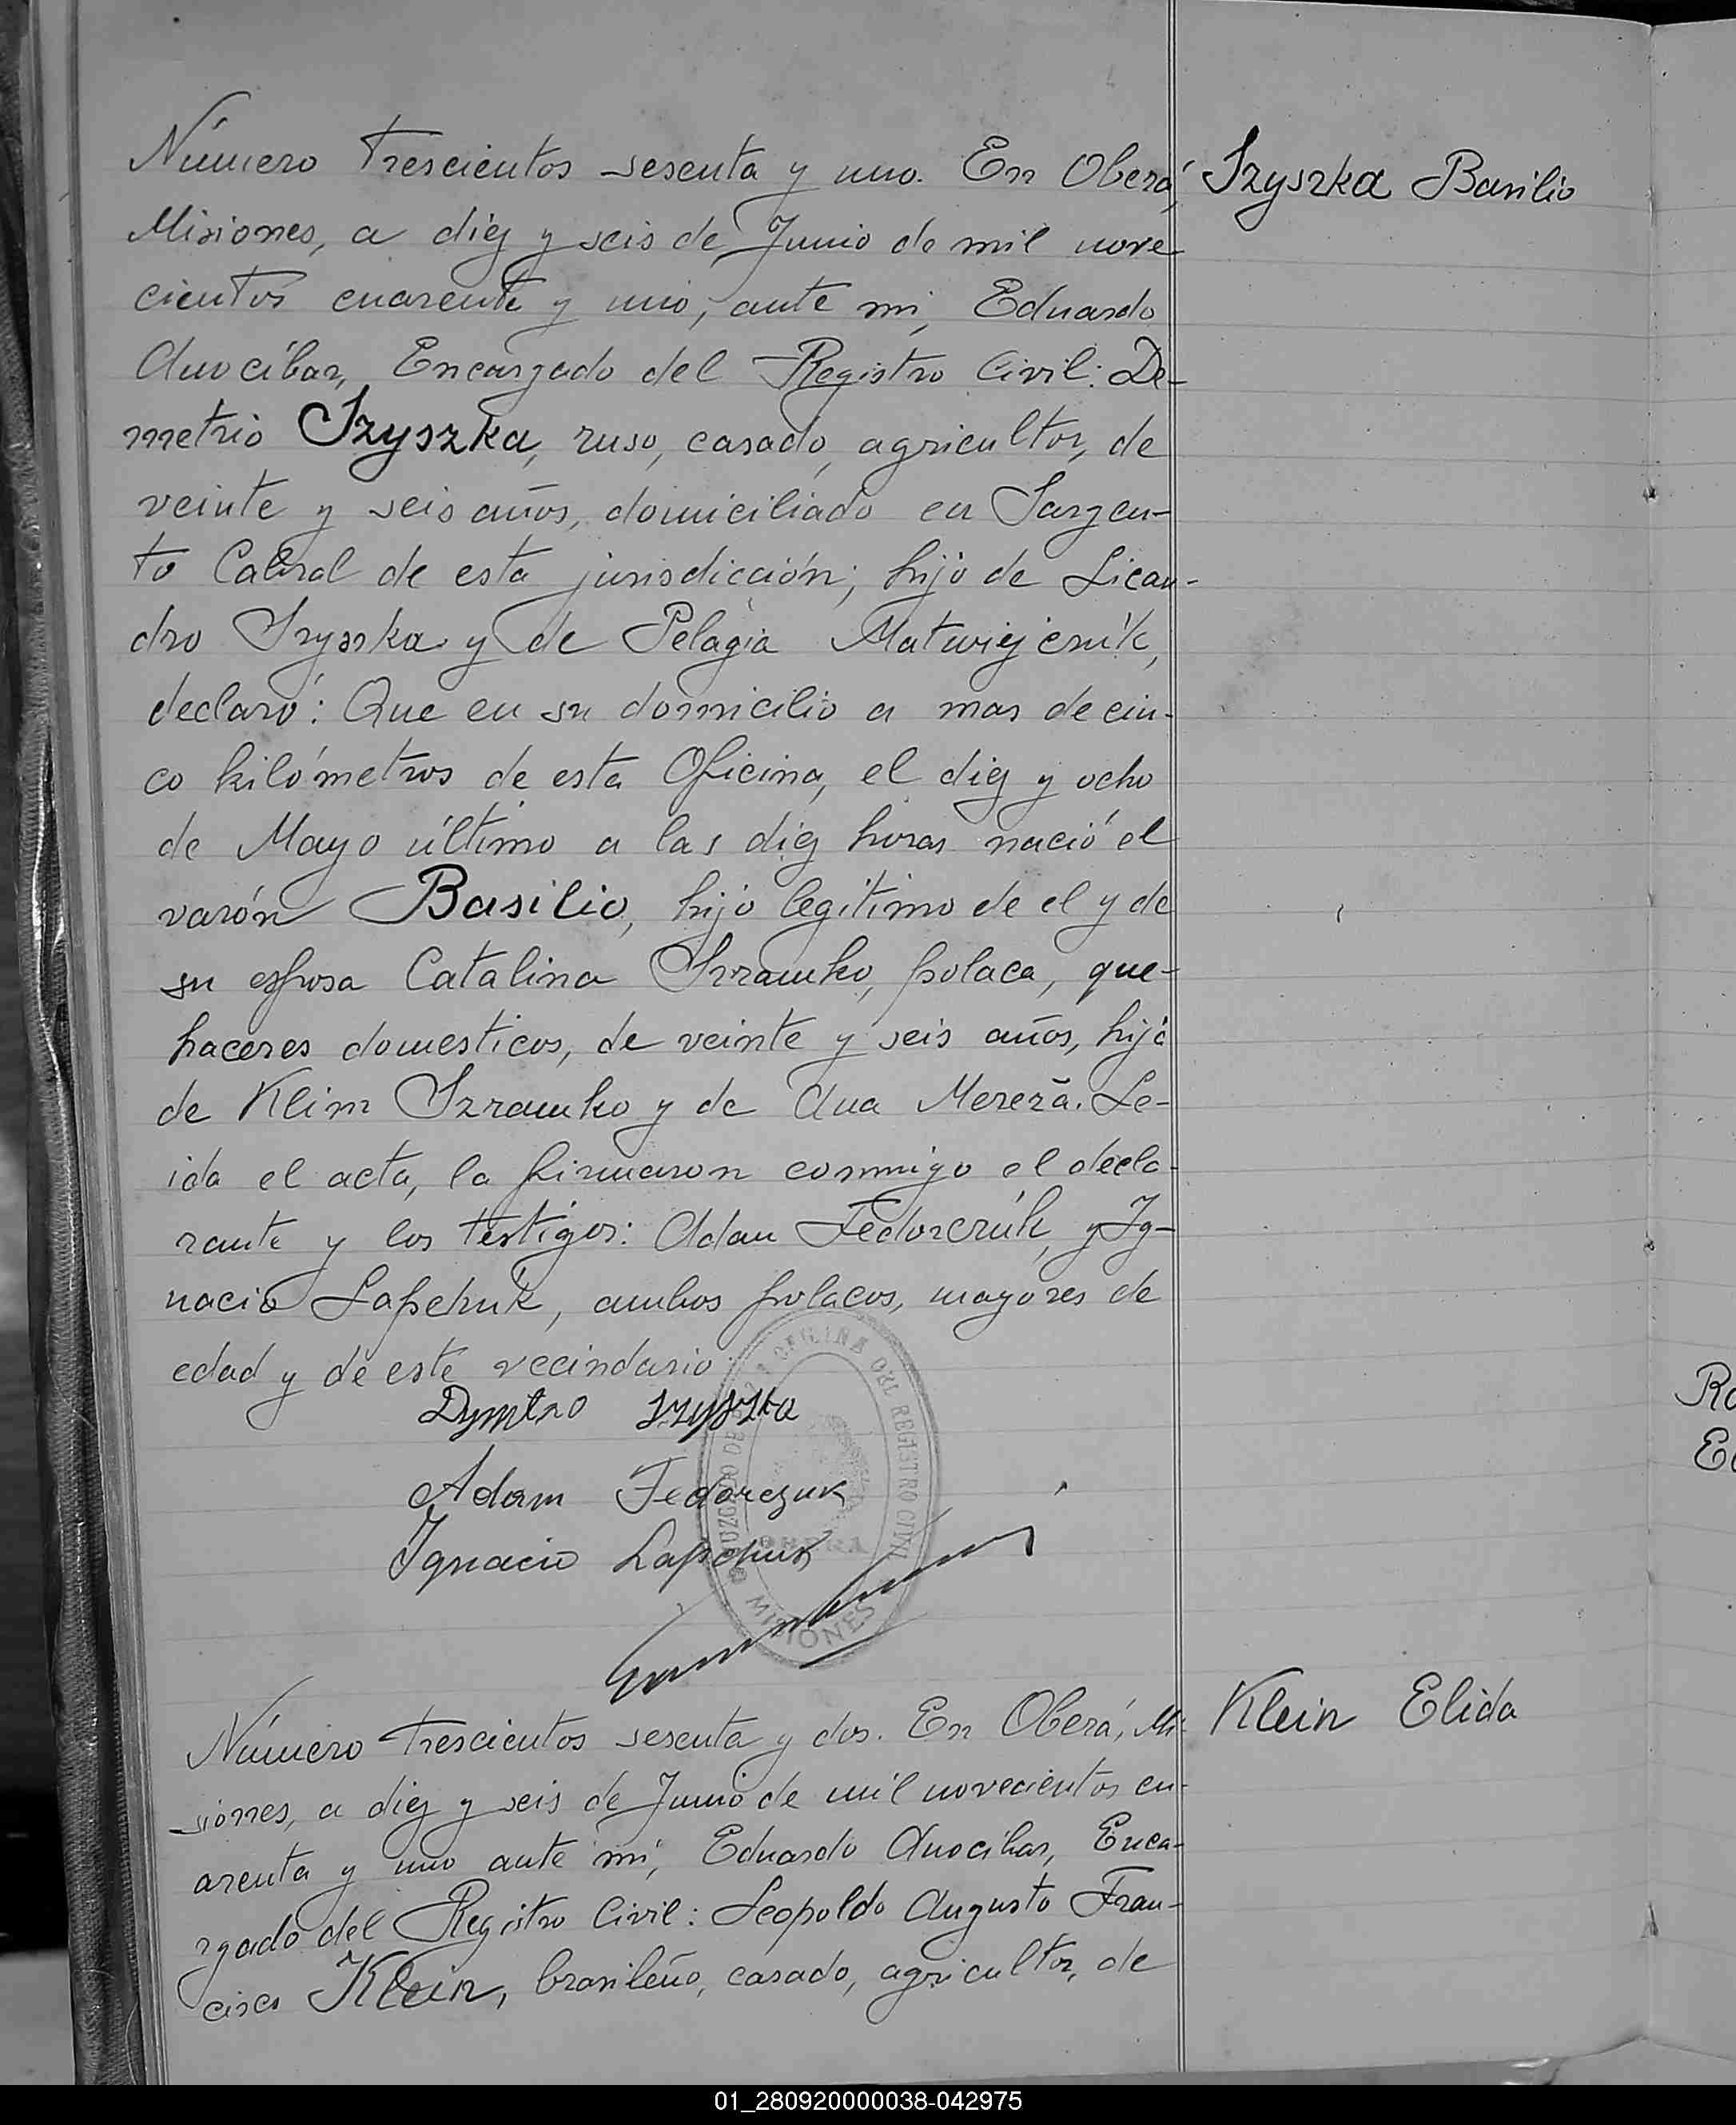 Número Trescientos sesenta y uno. En Oberá,
Szyszka Basilio
Misiones, a diez y seis de Junio de mil nove-
cientos cuarenta y uno, ante mi, Eduardo
Anocíbar, Encargado del Registro Civil: De-
metrio Szyszka, ruso, casado, agricultor, de
veinte y seis años, domiciliado en Sargen-
to Cabral de esta jurisdicción; hijo de Lican-
dro Szyszka y de Pelagia Matwiejczuk,
declaró: Que en su domicilio a mas de cin-
co kilómetros de esta Oficina, el diez y ocho
de Mayo último a las diez horas nació el
varón Basilio, hijo legítimo de el y de
su esposa Catalina Szramko, polaca, que-
haceres domesticos, de veinte y seis años, hija
de Klim Szramko y de Ana Mereza. Le-
ida el acta, la firmaron conmigo el decla-
rante y los testigos: Adan Fedorczúk, y Ig-
nacio Lapchuk, ambos polacos, mayores de
edad y de este vecindario.
Dymtro Szyszka
Adam Fedorczuk
Ignacio Lapchuk
JUZGADO DE PAZ Y OFICINA DEL REGISTRO CIVIL
OBERA
MISIONES
Número trescientos sesenta y dos. En Oberá, Mi-
Klein Elida
siones, a diez y seis de Junio de mil novecientos cu-
arenta y uno ante mi, Eduardo Anocíbar, Enca-
rgado del Registro Civil: Leopoldo Augusto Fran-
cisco Klein, brasileño, casado, agricultor, de
Ro
El
01_280920000038-042975